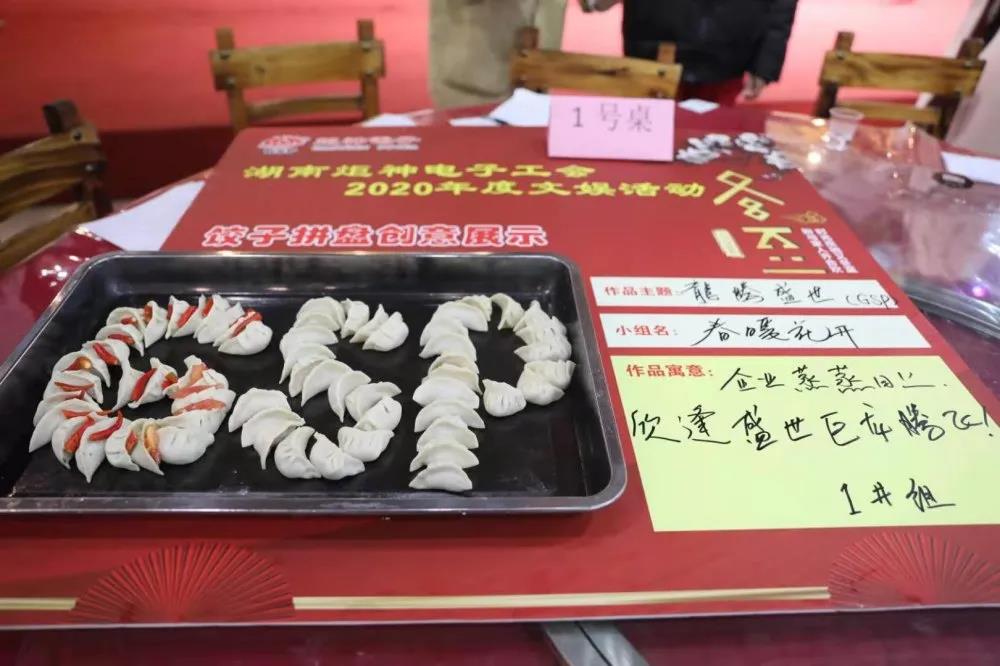 1号桌
湖南炬神电子工会
2020年度文娱活动
冬
至
饺子拼盘创意展示
GSP
作品主题：龍腾盛世（GSP）
小组名：春暖花开
作品寓意：企业蒸蒸日上.
欣逢盛世巨龙腾飞！
1#组